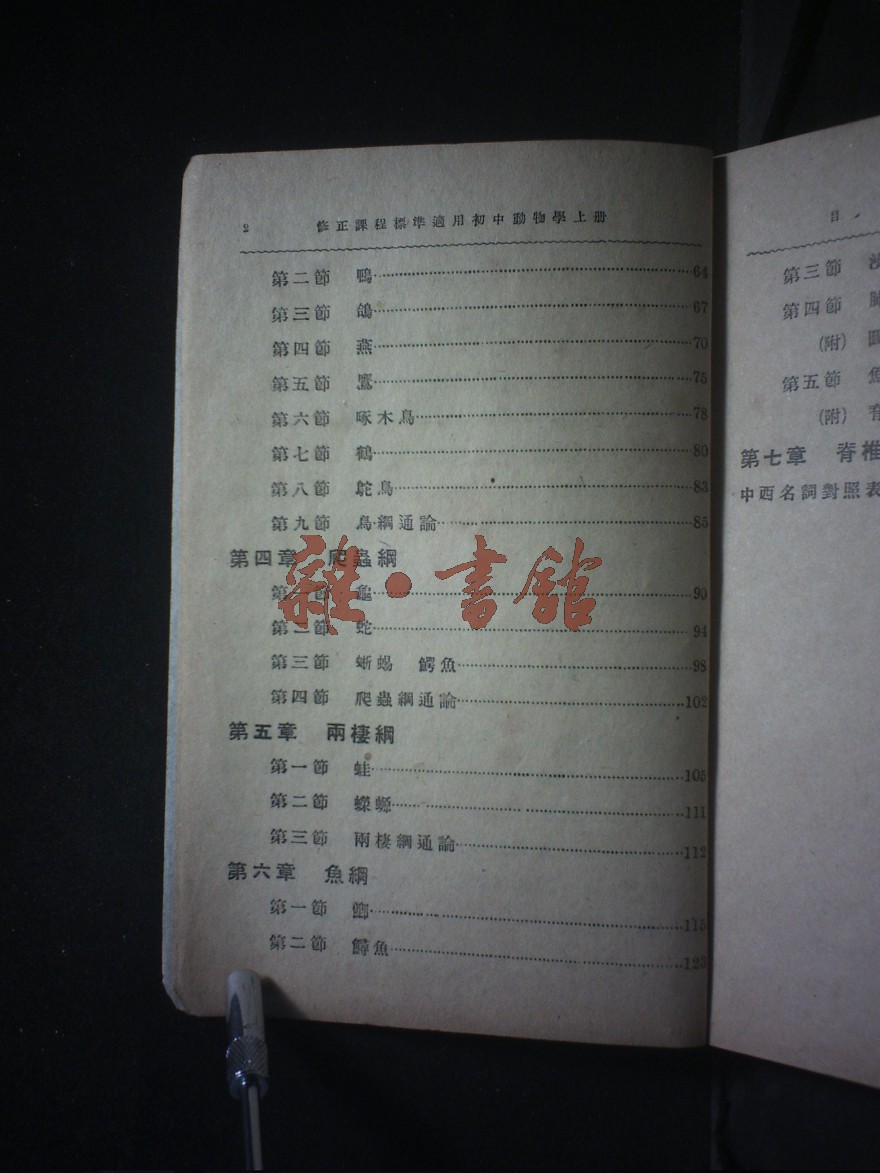 2 修正課程標準適用初中動物學上册
第二節 鴨 64
第三節 鴿 67
第四節 燕 70
第五節 鷹 75
第六節 啄木鳥 78
第七節 鶴 80
第八節 鴕鳥 83
第九節 鳥綱通論 85
第四章 爬蟲綱
第一節 龜 90
第二節 蛇 94
第三節 蜥蜴 鱷魚 98
第四節 爬蟲綱通論 102
第五章 兩棲綱
第一節 蛙 105
第二節 蠑螈 111
第三節 兩棲綱通論 112
第六章 魚綱
第一節 鯽 115
第二節 鱘魚 123
雜·書館
目
第三節
第四節
(附)
第五節 魚
(附)
第七章 脊椎
中西名詞對照表